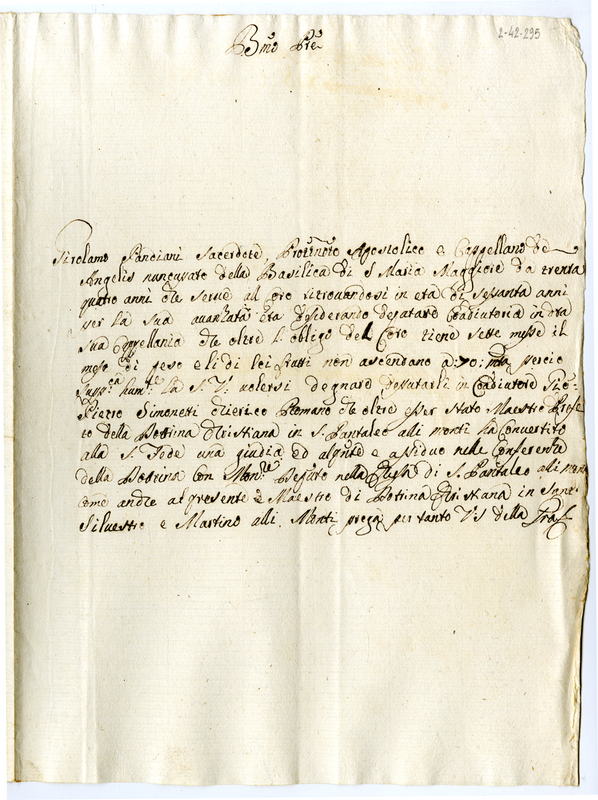 2-42-295
Bmo Pre
Girolamo Panciani Sacerdote, Protonoto Apostolico e Cappellano de
Angelis nuncupato della Basilica di S Maria Maggiore da trenta
quatro anni che serve al Coro ritrovandosi in età di sessanta anni
per la sua avanzata età desiderando deputare Coadiutoria in dta
sua Cappellania che oltre l'obligo del Coro tiene sette messe il
mese di peso e li di lei frutti non ascendano a :70: mta percio
suppca humte la S. V. volersi degnare deputarli in Coadiutore Gio:
Pietro Simonetti Chierico Romano che oltre esser stato Maestro Prefe
to della Dottrina Christiana in S. Pantaleo alli monti ha convertito
alla S. Fede una giudia ed assiduo nelle Conferenze
della Dottrina con Monre nella Chiesa di S. Pantaleo alli monti
come anche al presente è Maestro di Dottrina Christiana in Santi
Silvestro e Martino alli Monti, prega per tanto V S della